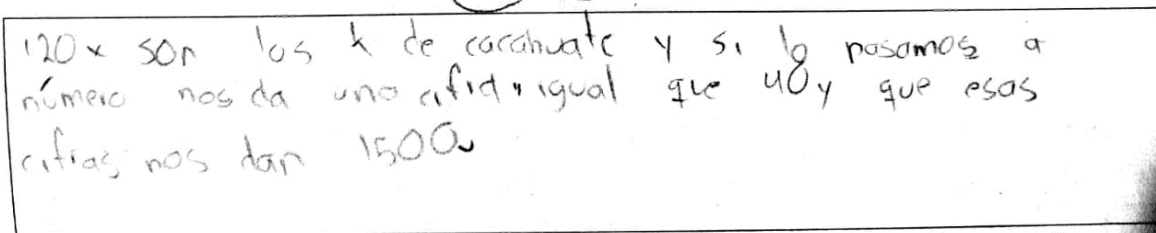 120x son los k de cacahuate y si lo pasamos a
número nos da una cifra, igual que 40y que esas
cifras nos dan 1500.